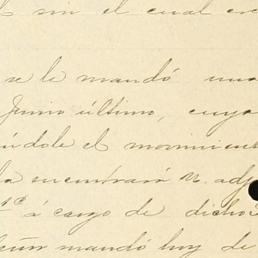 sin el cual
se le mandó una
Junio último, cuya
ndole el movimient
la encontrará V. adj
á cargo de dicho
mandó hoy de